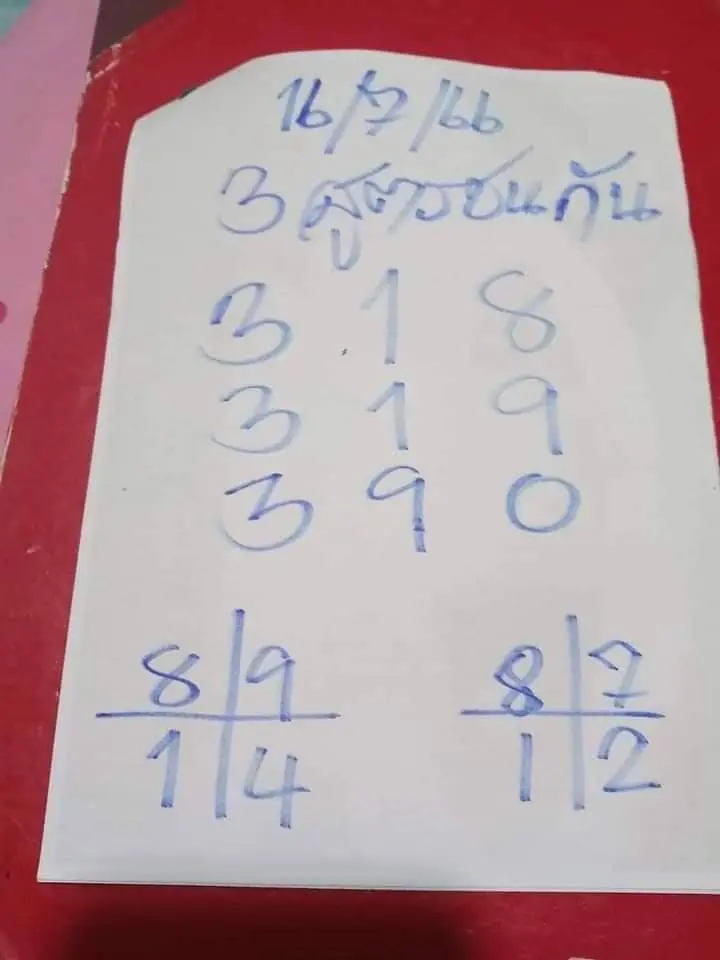 16/7/66
3 สูตรชนกัน
3 1 8
3 1 9
3 9 0
8 9 8 7
1 4 1 2